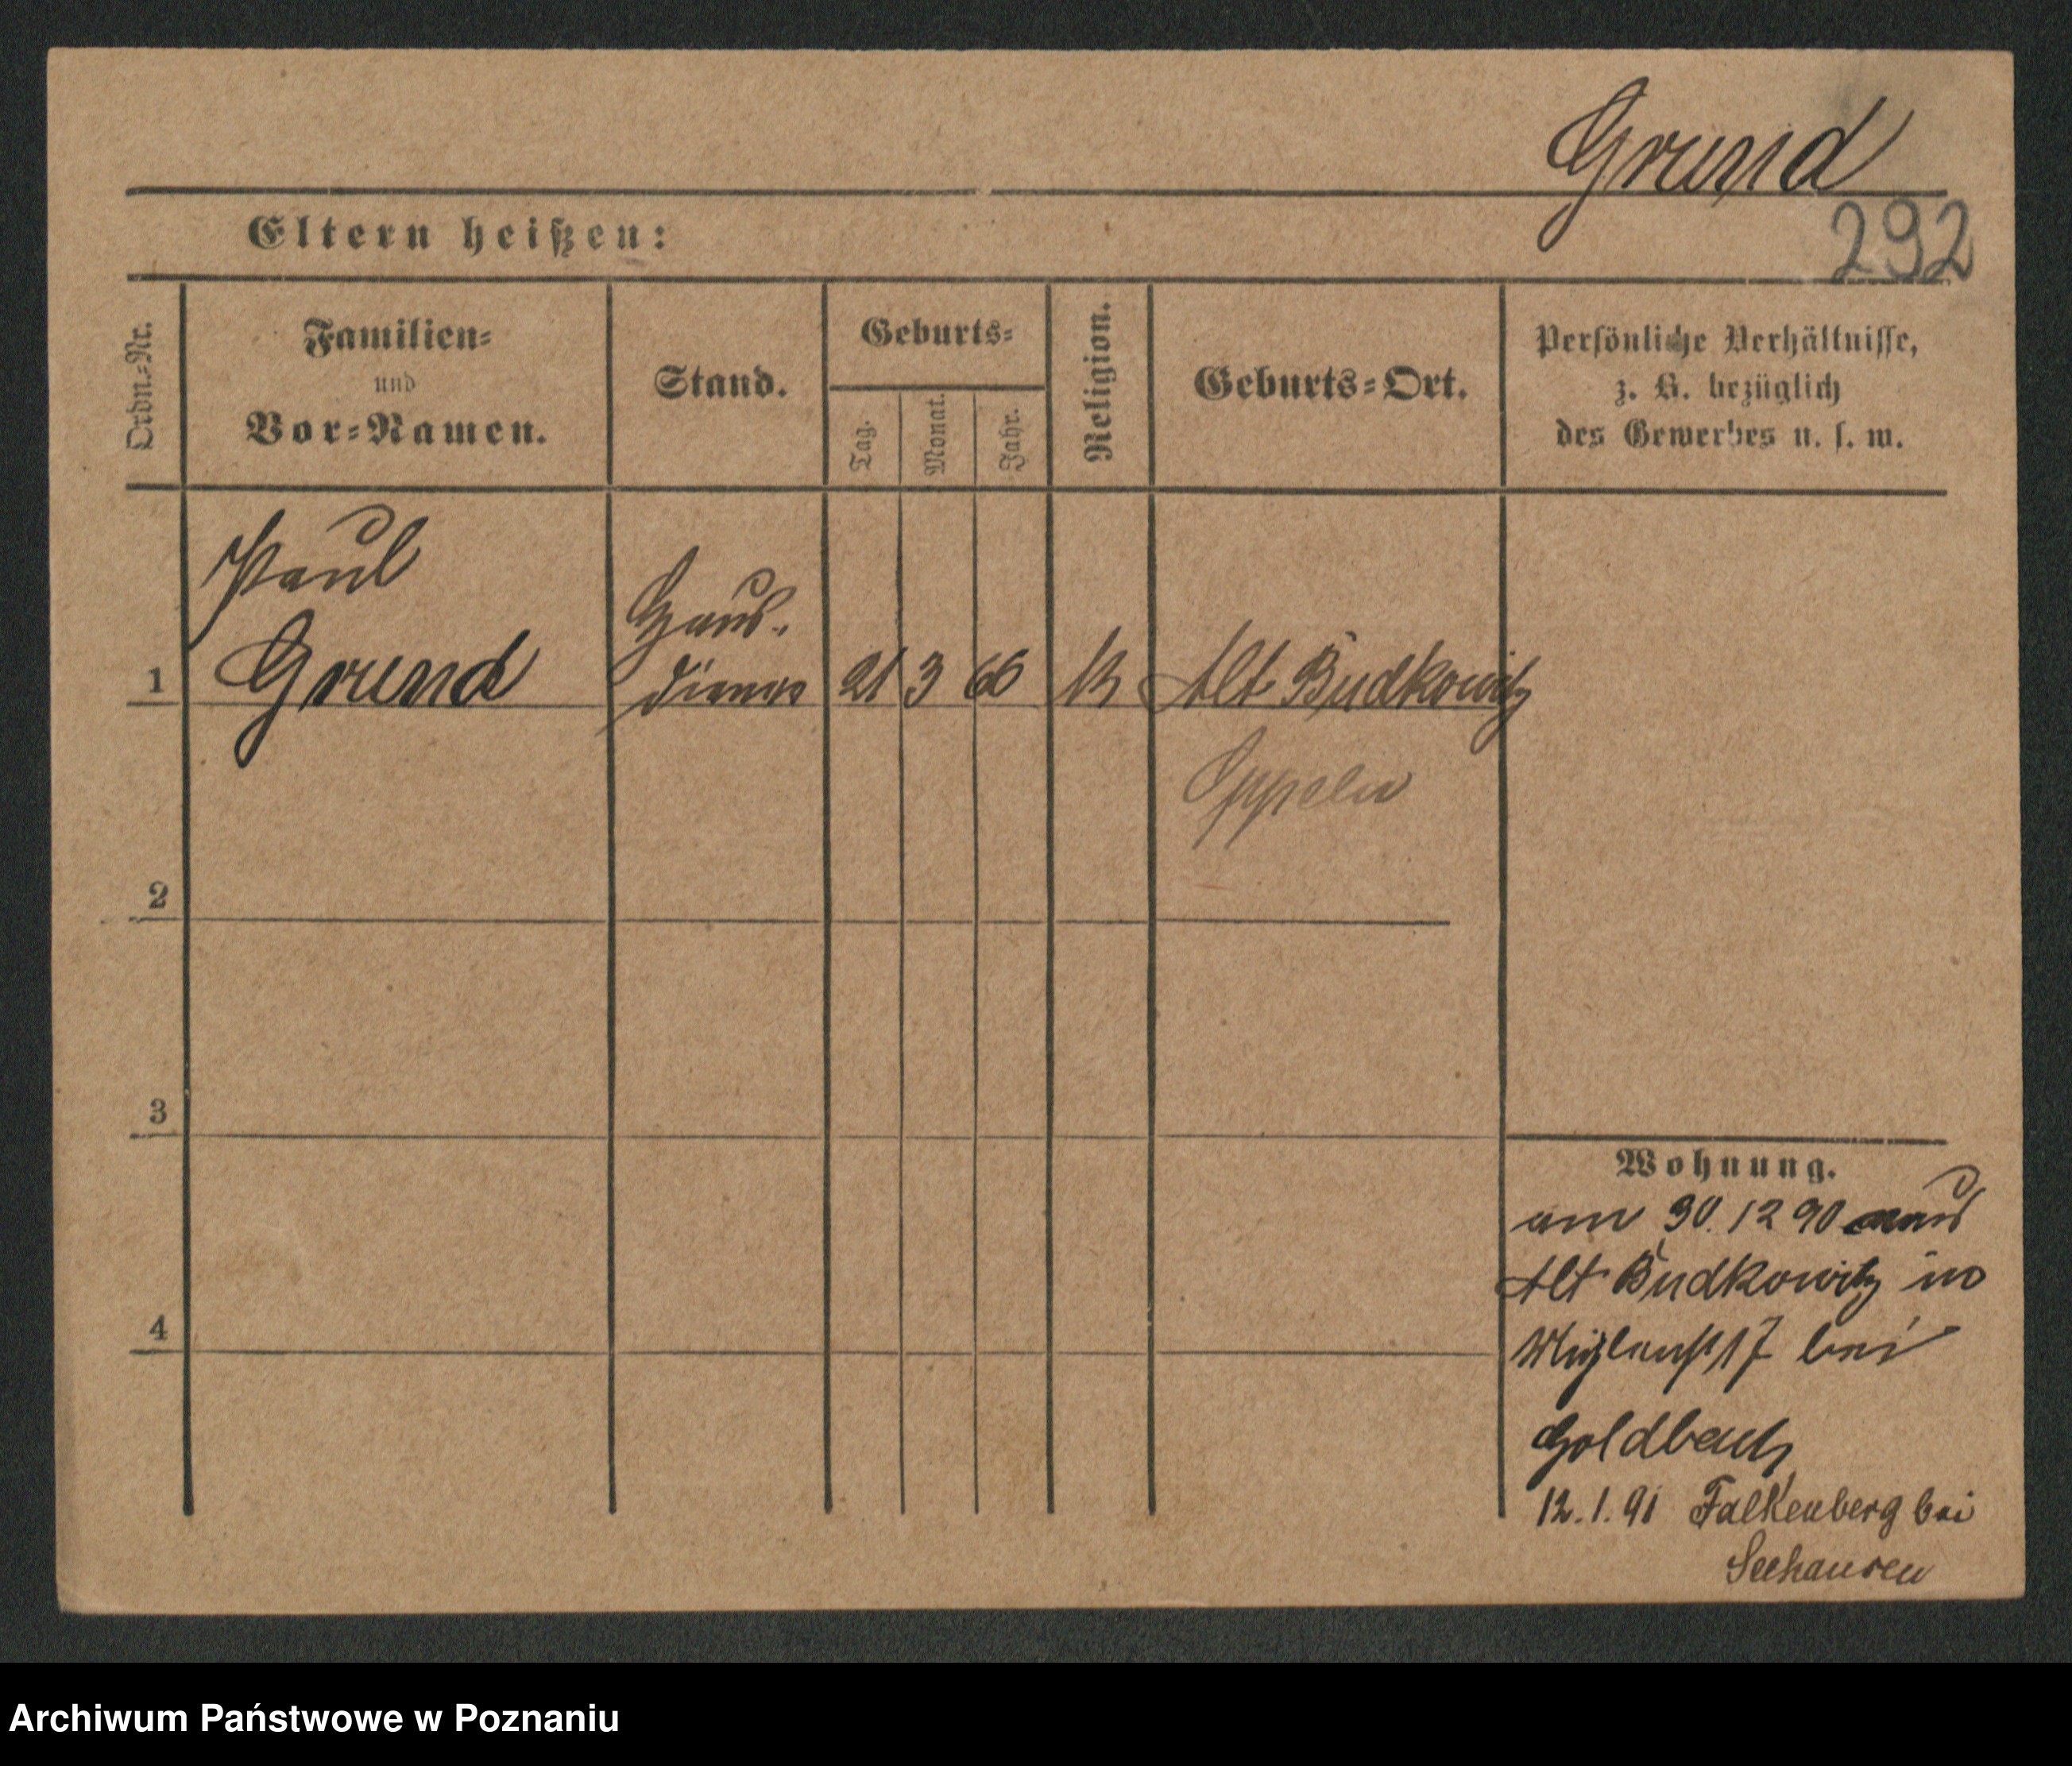 Grund
292
Eltern heißen:
Ordn.-Nr.
Familien-
und
Vor-Namen.
Stand.
Geburts-
Tag.
Monat.
Jahr.
Religion.
Geburts-Ort.
Persönliche Verhältnisse,
z. B. bezüglich
des Gewerbes u. s. w.
Paul
Haus-
1 Grund diener 21 3 66 K Alt Budkowitz
Oppeln
2
3
Wohnung.
am 30. 12 90 aus
Alt Budkowitz in
4
17 bei
Goldbach
12. 1. 91 Falkenberg bei
Seehausen
Archiwum Państwowe w Poznaniu